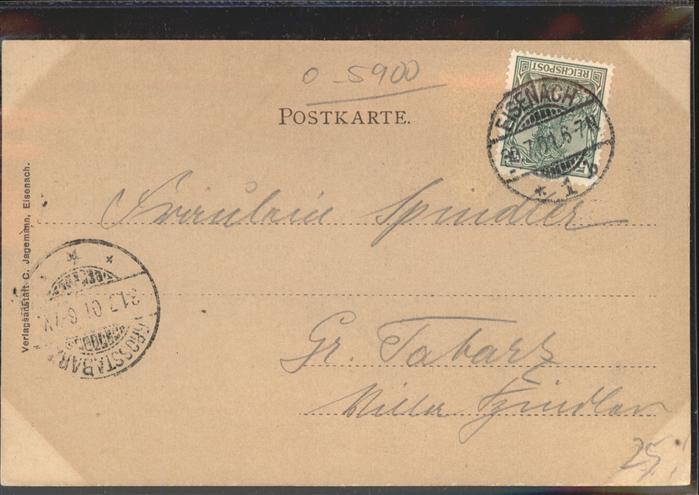 0-5900
POSTKARTE.
REICHSPOST
EISENACH
7.01.6-7N
* 1 b
Verlagsanstalt C. Jagemann, Eisenach.
Fräulein Spindler
GROSSTABARZ
31.7.01.6-7V
Gr. Tabarz
Villa Spindler
25,-